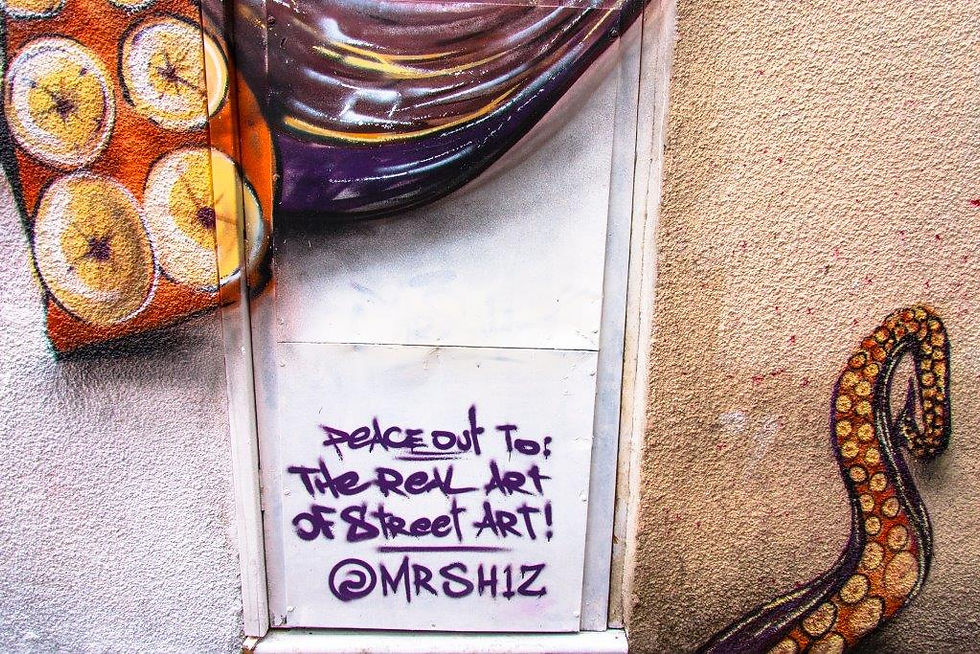 PEACE OUT TO:
THE REAL ART
OF STREET ART!
@MRSHIZ